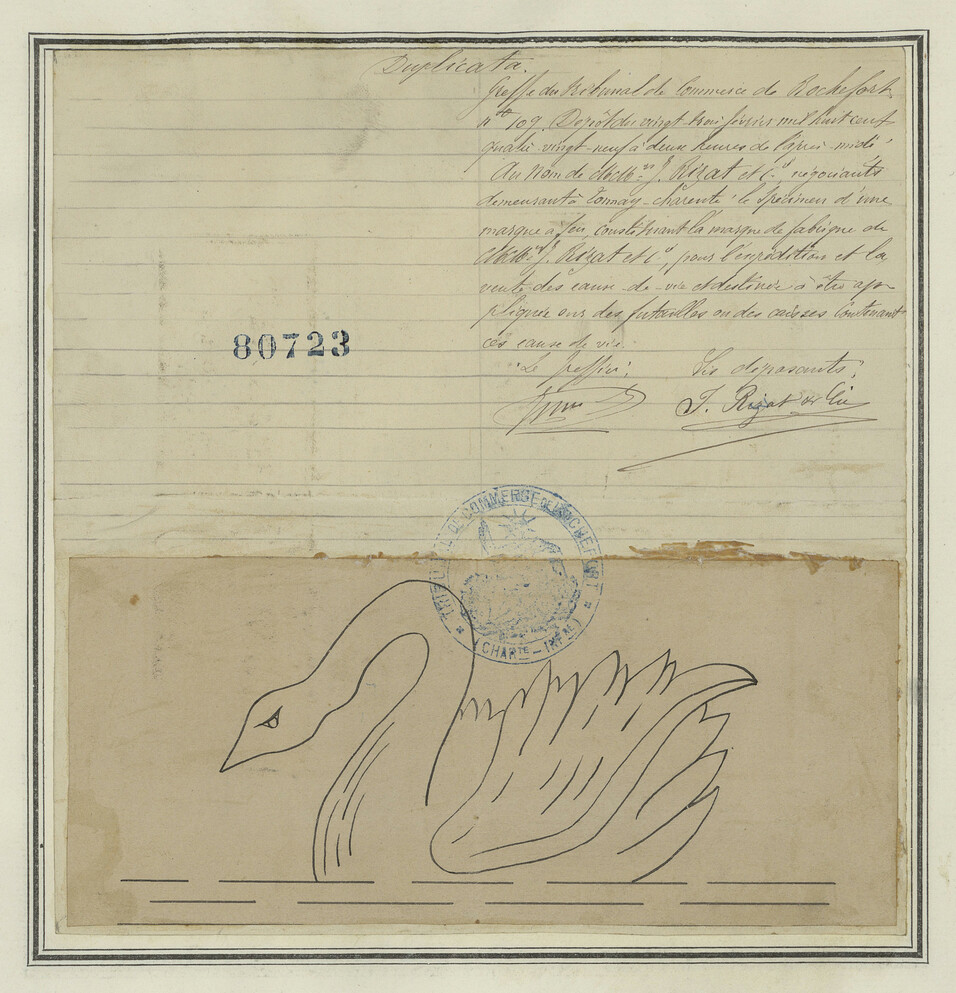 Duplicata.
Greffe du Tribunal de Commerce de Rochefort
nº 109. Dépôt du vingt trois février mil huit cent
quatre-vingt-neuf à deux heures de l'après-midi
Au nom de MM. J. Rizat et Cie, négociants
demeurant à Tonnay-Charente, le spécimen d'une
marque à feu, constituant la marque de fabrique de
MM. J. Rizat et Cie, pour l'expédition et la
vente des eaux-de-vie et destinée à être ap-
pliquée sur des futailles ou des caisses contenant
ces eaux de vie.
Le Greffier; Les déposants;
J. Rizat et Cie
80723
TRIBUNAL DE COMMERCE DE ROCHEFORT
(CHARTE - INFRE)